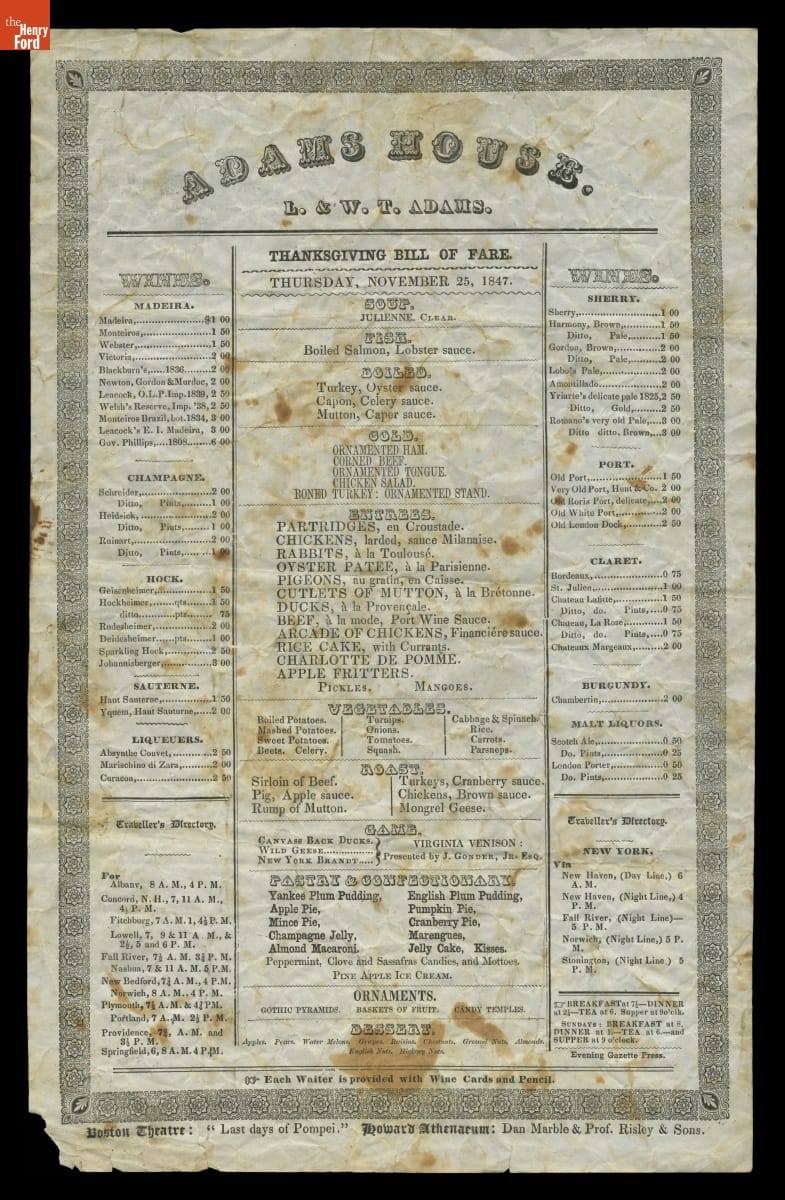 the
Henry
Ford
ADAMS HOUSE.
L. & W. T. ADAMS.
WINES.
MADEIRA.
Madeira,......................$1 00
Monteiros,....................1 50
Webster,......................1 50
Victoria,.....................2 00
Blackburn's,....1836..........2 00
Newton, Gordon & Murdoc, 2 00
Leacock, O.L.P. Imp. 1839, 2 50
Welsh's Reserve, Imp. '38, 2 50
Monteiros Brazil, bot. 1834, 3 00
Leacock's E. I. Madeira, 3 00
Gov. Phillips,....1808.......6 00
CHAMPAGNE.
Schreider,...............2 00
Ditto, Pints,......1 00
Heidsick,................2 00
Ditto, Pints,......1 00
Ruinart,.................2 00
Ditto, Pints,......1 00
HOCK.
Geisenheimer,............1 50
Hockheimer,.....qts......1 50
ditto........pts....... 75
Rudesheimer,.............2 00
Deidesheimer.....pts.....1 00
Sparkling Hock,..........2 50
Johannisberger,..........3 00
SAUTERNE.
Haut Sauterne,...........1 50
Yquem, Haut Sauterne,....2 00
LIQUEURS.
Absynthe Couvet,.........2 50
Marischino di Zara,......2 00
Curacoa,.................2 50
Traveller's Directory.
For
Albany, 8 A. M., 4 P. M.
Concord, N. H., 7, 11 A. M.,
4½ P. M.
Fitchburg, 7 A. M. 1, 4½ P. M.
Lowell, 7, 9 & 11 A. M., &
2½, 5 and 6 P. M.
Fall River, 7½ A. M. 3¾ P. M.
Nashua, 7 & 11 A.M. 5 P.M.
New Bedford, 7½ A. M., 4 P.M.
Norwich, 8 A. M.. 4 P. M.
Plymouth, 7½ A. M. & 4¾ P.M.
Portland, 7 A. M. 2½ P. M.
Providence, 7½, A. M. and
3½ P. M.
Springfield, 6, 8 A.M. 4 P.M.
THANKSGIVING BILL OF FARE.
THURSDAY, NOVEMBER 25, 1847.
SOUP.
JULIENNE. CLEAR.
FISH.
Boiled Salmon, Lobster sauce.
BOILED.
Turkey, Oyster sauce.
Capon, Celery sauce.
Mutton, Caper sauce.
COLD.
ORNAMENTED HAM.
CORNED BEEF.
ORNAMENTED TONGUE.
CHICKEN SALAD.
BONED TURKEY: ORNAMENTED STAND.
ENTREES.
PARTRIDGES, en Croustade.
CHICKENS, larded, sauce Milanaise.
RABBITS, à la Toulousé.
OYSTER PATEE, à la Parisienne.
PIGEONS, au gratin, en Caisse.
CUTLETS OF MUTTON, à la Brétonne.
DUCKS, à la Provençale.
BEEF, à la mode, Port Wine Sauce.
ARCADE OF CHICKENS, Financiére sauce.
RICE CAKE, with Currants.
CHARLOTTE DE POMME.
APPLE FRITTERS.
PICKLES. MANGOES.
VEGETABLES.
Boiled Potatoes. Turnips. Cabbage & Spinach.
Mashed Potatoes. Onions. Rice.
Sweet Potatoes. Tomatoes. Carrots.
Beets. Celery. Squash. Parsneps.
ROAST.
Sirloin of Beef. Turkeys, Cranberry sauce.
Pig, Apple sauce. Chickens, Brown sauce.
Rump of Mutton. Mongrel Geese.
GAME.
CANVASS BACK DUCKS.
WILD GEESE.................
NEW YORK BRANDT....
VIRGINIA VENISON:
Presented by J. GONDER, JR. ESQ.
PASTRY & CONFECTIONARY.
Yankee Plum Pudding, English Plum Pudding,
Apple Pie, Pumpkin Pie,
Mince Pie, Cranberry Pie,
Champagne Jelly, Marengues,
Almond Macaroni. Jelly Cake, Kisses.
Peppermint, Clove and Sassafras Candies, and Mottoes.
PINE APPLE ICE CREAM.
ORNAMENTS.
GOTHIC PYRAMIDS. BASKETS OF FRUIT. CANDY TEMPLES.
DESSERT.
Apples. Pears. Water Melons. Grapes. Raisins. Chestnuts. Ground Nuts. Almonds.
English Nuts. Hickory Nuts.
WINES.
SHERRY.
Sherry,......................1 00
Harmony, Brown,..............1 50
Ditto, Pale,............1 50
Gordon, Brown,...............2 00
Ditto, Pale,............2 00
Lobo's Pale,.................2 00
Amontillado..................2 00
Yriarte's delicate pale 1825, 2 50
Ditto, Gold,............2 50
Romano's very old Pale,......3 00
Ditto ditto, Brown,.....3 00
PORT.
Old Port,....................1 50
Very Old Port, Hunt & Co. 2 00
Old Roris Port, delicate,....2 00
Old White Port,..............2 00
Old London Dock,.............2 50
CLARET.
Bordeaux,....................0 75
St. Julien,..................1 00
Chateau Lafitte,.............1 50
Ditto, do. Pints,.....0 75
Chateau, La Rose,............1 50
Ditto, do. Pints,.....0 75
Chateaux Margeaux,...........2 00
BURGUNDY.
Chambertin,..................2 00
MALT LIQUORS.
Scotch Ale,..................0 50
Do. Pints,..............0 25
London Porter,...............0 50
Do. Pints,..............0 25
Traveller's Directory.
NEW YORK.
Via
New Haven, (Day Line,) 6
A. M.
New Haven, (Night Line,) 4
P. M.
Fall River, (Night Line)—
5 P. M.
Norwich, (Night Line,) 5 P.
M.
Stonington, (Night Line,) 5
P. M.
☞BREAKFAST at 7½—DINNER
at 2½—TEA at 6. Supper at 9 o'clk.
SUNDAYS: BREAKFAST at 8.
DINNER at 1—TEA at 6.—and
SUPPER at 9 o'clock.
Evening Gazette Press.
☞ Each Waiter is provided with Wine Cards and Pencil.
Boston Theatre: "Last days of Pompei." Howard Athenaeum: Dan Marble & Prof. Risley & Sons.